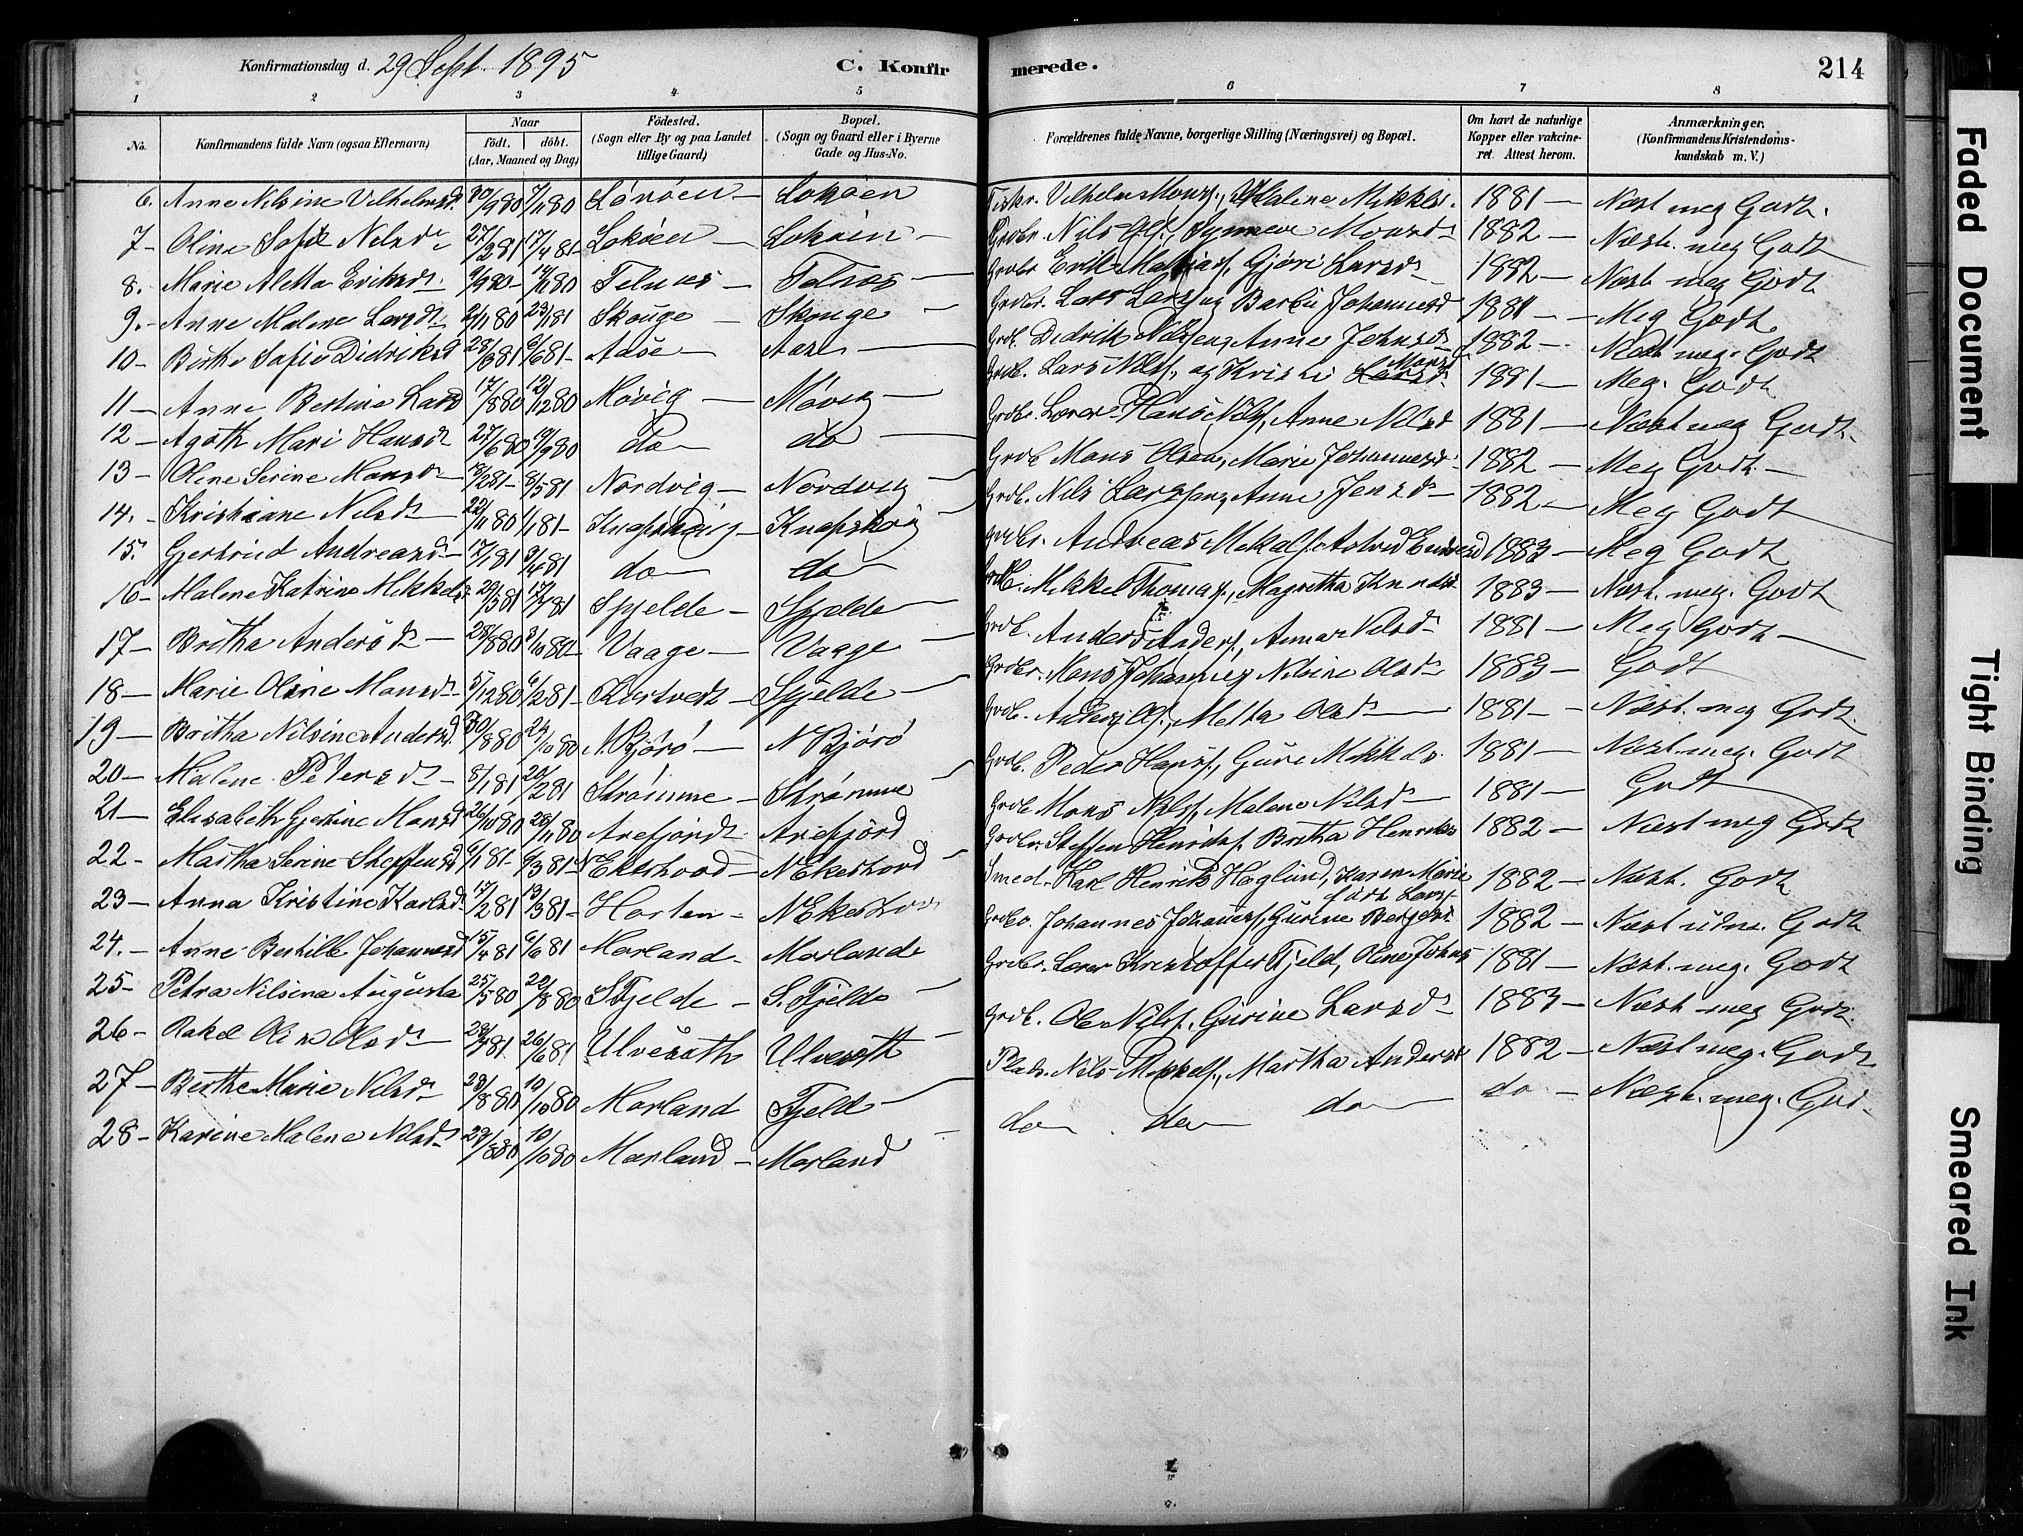 Konfirmationsdag d. 29 Sept. 1895 C. Konfirmerede. 214
1 2 3 4 5 6 7 8
No. Konfirmandens fulde Navn (ogsaa Efternavn) Naar født. døbt. (Aar, Maaned og Dag) Fødested. (Sogn eller By og paa Landet tillige Gaard) Bopæl. (Sogn og Gaard eller i Byerne Gade og Hus-No. Forældrenes fulde Navne, borgerlige Stilling (Næringsvei) og Bopæl. Om havt de naturlige Kopper eller vakcineret. Attest herom. Anmærkninger. (Konfirmandens Kristendomskundskab m. V.)
6. Anne Nilsine Vilhelmsd. 7/11 80 Lokøen 1881 Næst meg Godt.
7 Olina Sofie Nilsd 27/2 81 17/4 81 Lokøen Lokøen Nils 1882 Næst. meg Godt
8. Marie Aletta Eriksd. Telnæs Telnæs Grdbr Erik Gjøri Larsd 1882 Næst meg Godt
9. Anne Malene Larsd 23/1 81 Skauge Skauge Grdbr. Lars Larss og Johannesd 1881 Meg Godt
10 Sofie Didriksd Aase Aase Grdb. Didrik Anne Johnsd 1882 Næst meg. Godt
11 Anne Bertine Larsd 17/8 80 12/12 80 Møvig Møvig Grdb. Lars Nilss. og Kristi Monsd 1881 Meg. Godt
12 Agath Mari Hansd 27/6 80 19/9 80 do do Grdbr. Lærer Hans Nilss, Anne Nilsd 1881 Næst meg Godt
13 Oline Serine Monsd 8/5 81 Nordvig Nordvig Grdb Mons Olsen, Marie Johannesd 1882 Meg Godt
14. Kristiane Nilsd 22/11 80 1/1 81 Knapskog Knapskog Grdb. Nils Larss og Anne Jensd 1882 Meg Godt
15. Gjertrud Andreasd 17/1 81 3/4 81 do do Grdbr. Andreas Mikals. Astrid 1883 Meg Godt
16 Malene Katrine Mikkelsd 29/3 81 17/4 81 Spjelde Spjelde Grdb. Mikkel Thomass., Magretha Knudsd 1883 Næst. meg. Godt
17 Britha Andersd 28/8 80 3/10 80 Vaage Vaage Grdb. Anders Anderss, Anna Nilsd 1881 Meg Godt
18 Marie Oline Monsd 5/12 80 6/2 81 Spjelde Grdbr. Mons Johanness Nilsine Olsd 1883 Godt
19 Britha Nilsine Andersd. 30/8 80 24/10 80 N. Bjørø N Bjørø Grdb. Anders Ols., Metta Olsd 1881 Næst. meg Godt.
20 Malene Pedersd 8/1 81 20/2 81 Strømme Strømme Grdb. Peder Hanss., Guri Mikkelsd 1881 Næst. meg. Godt
21 Elisabeth Gjertine Monsd 26/10 80 28/11 80 Arefjord Arefjord Grdb Mons Nilss, Malene Nilsd 1881 Godt
22 Martha Serine Steffensd 6/1 81 6/3 81 N Ekerhovd N Ekerhovd Grdbr. Steffen Henrikss. Britha Henriksd 1882 Næst meg Godt
23 Anna Kristine Karlsd 17/2 81 13/3 81 Horten N Ekerhovd Smed. Karl Henrik Høglund, Karen Marie født Larss 1882 Næst. Godt
24. Anne Bertille Johannesd 15/4 81 6/6 81 Morland Morland Grdbr. Johannes Johanness, Gurine 1882 Næst udm. Godt
25 Petra Nilsina Augusta 25/5 80 22/8 80 S Fjelde S. Fjelde Grdbr. Lærer Kristoffer Fjeld, Oline Johns 1881 Næst. meg. Godt
26 Rakel Oline Olsd 26/6 81 Ulveseth Ulveseth Grdb. Ole Nilss. Gurine Larsd 1883 Næst meg Godt.
27 Berthe Marie Nilsd 10/10 80 Morland Fjeld Plads. Nils Mikkelss., Martha Andersd 1882 Næst meg. Godt
28 Karine Malene Nilsd 10/10 80 Morland Morland do do do do Næst. meg. God
Faded Document
Tight Binding
Smeared Ink